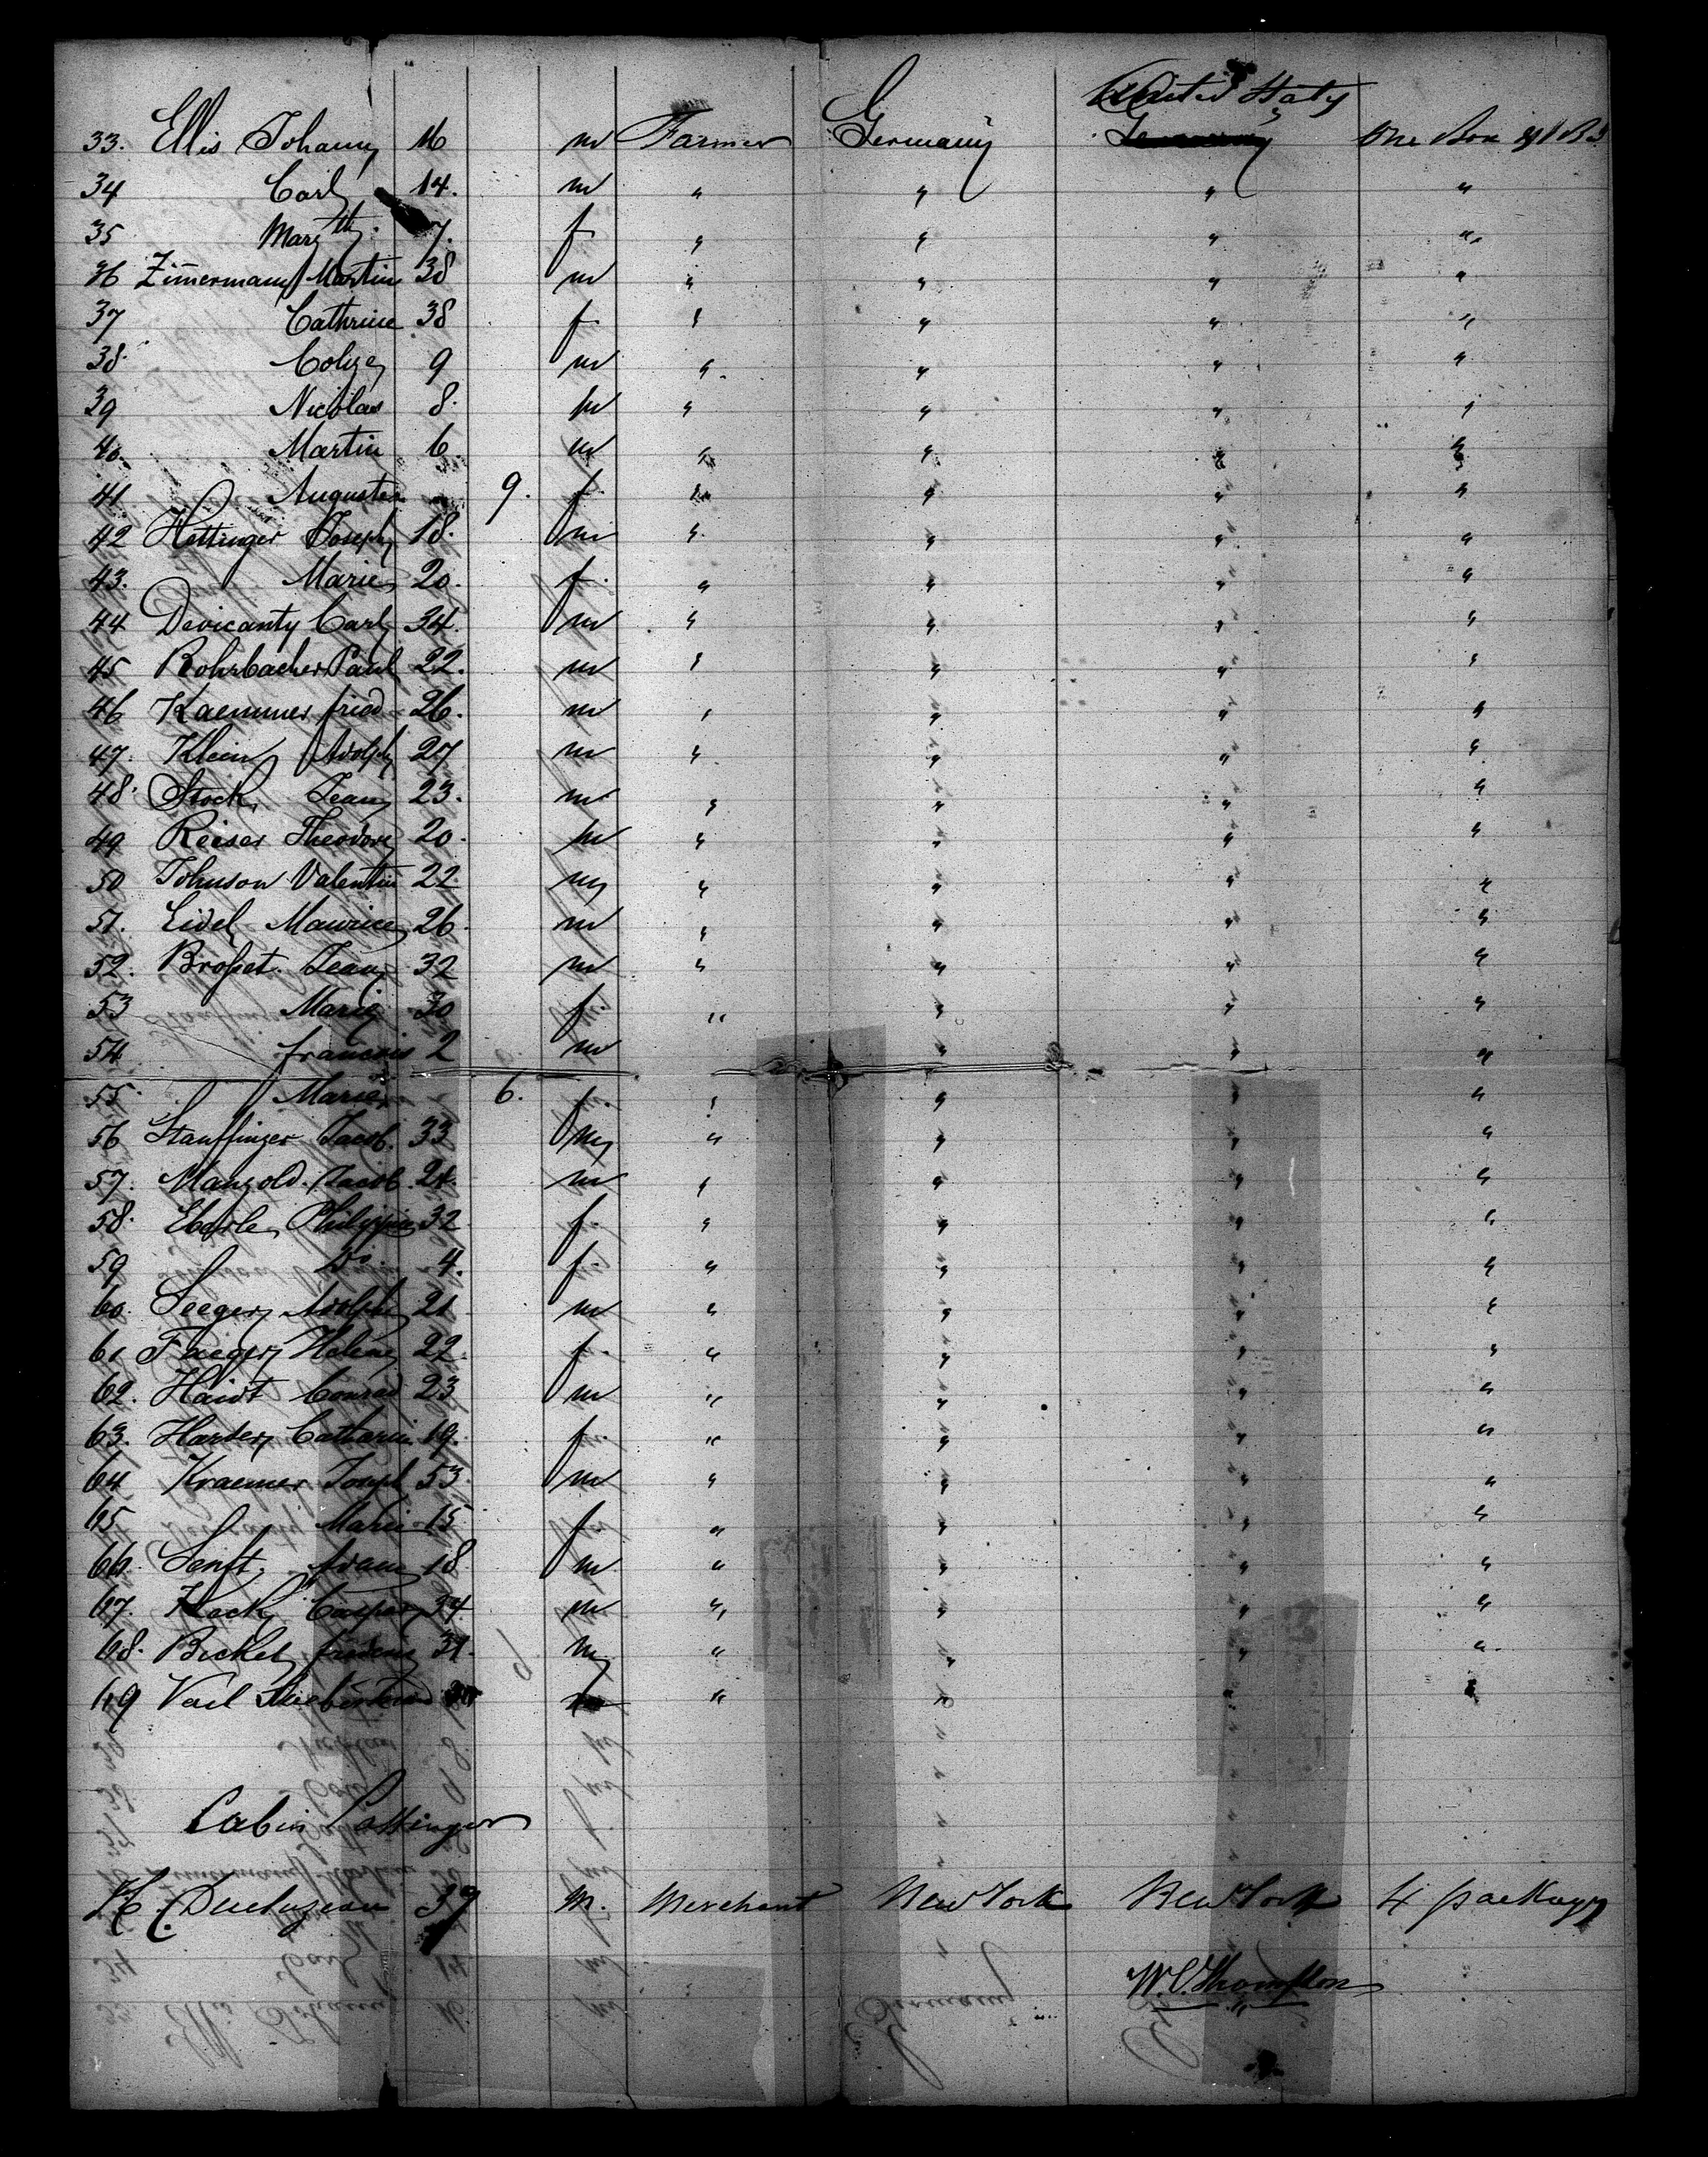 United States
33. Ellis Johann 16 m Farmer Germany Germany One Box
34 Carl 14. m " " " "
35 Marg th. 7. f " " " "
36 Zimermann Martin 38 m " " " "
37 Cathrine 38 f. " " " "
38. 9 m " " " "
39 Nicolas 8. m " " " "
40. Martin 6 m " " " "
41 Auguste 9. f. " " " "
42 Hettinger Joseph 18. m " " " "
43. Marie 20. f. " " " "
44 Devicanty Carl 34. m " " " "
45 Rohrbacher Paul 22. m " " " "
46 Kaemmer fried 26. m " " " "
47. Klein Adolph 27 m " " " "
48. Stock Jean 23. m " " " "
49 Reiser Theodore 20. m " " " "
50 Johnson Valentin 22 m " " " "
51. Eidel Maurice 26. m " " " "
52. Jean 32 m " " " "
53 Marie 30 f. " " " "
54. francois 2 m " "  "
55. Marie 6. f. " " " "
56 Stauffinger Jacob. 33 m " " " "
57. Mangold Jacob 24. m " " " "
58. Eberle Philippine 32 f. " " " "
59 Do 4. f. " " " "
60. Seeger Adolph 21 m " " " "
61 Jaeger Helene 22. f. " " " "
62. Haidt Conrad 23 m " " " "
63. Harder Catharin 19. f. " " " "
64 Kraemer Joseph 53. m " " " "
65 Marie 15 f. " " " "
66. Senft. franz 18 m. " " " "
67. Caspar 34. m " " " "
68. Bickel 31. m " " " "
69 " " " "
Cabin Passenger
39 M. Merchant New York New York 4 packages
W. C. Thompson